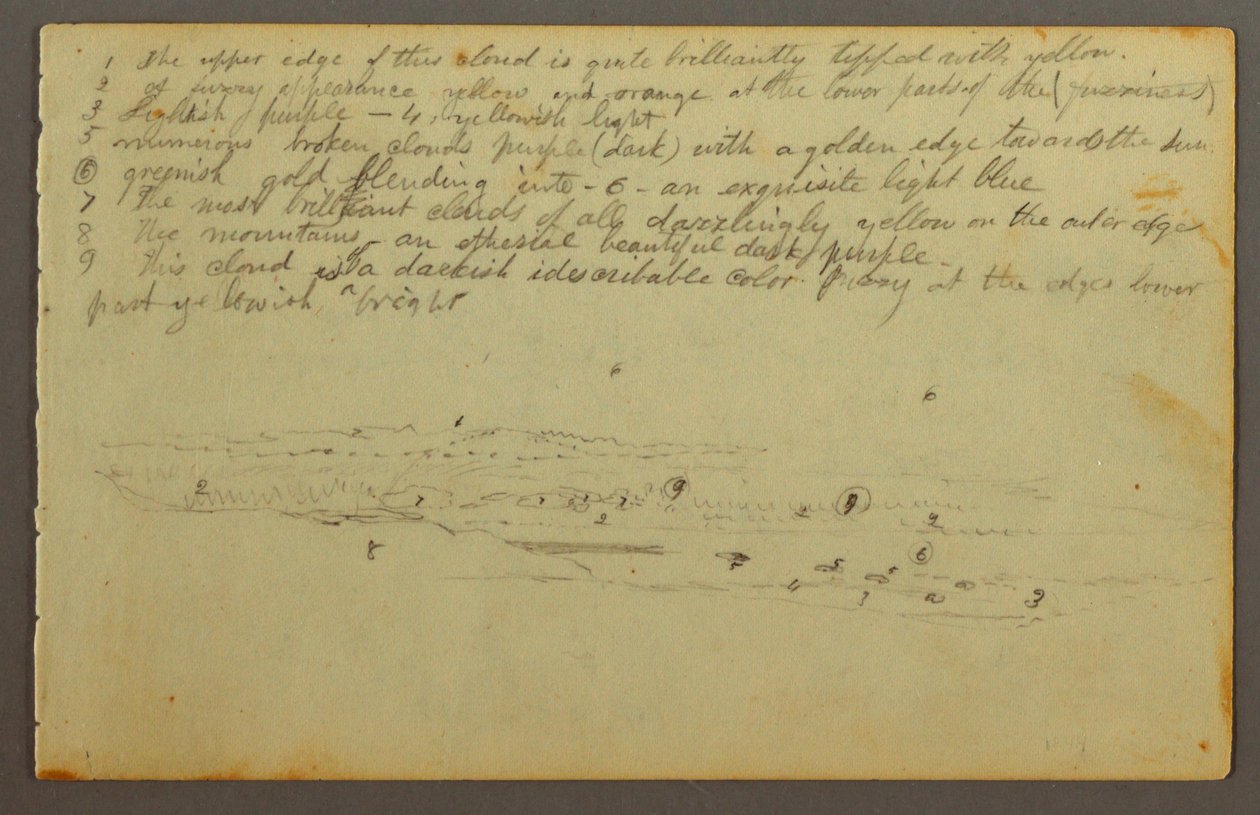 1 The upper edge of this cloud is quite brilliantly tipped with yellow.
2 of fuzzy appearance yellow and orange at the lower parts of the (fuzziness)
3 Lightish purple - 4, yellowish light
5 numerous broken clouds purple (dark) with a golden edge towards the sun.
6 greenish gold blending into - 6 - an exquisite light blue
7 The most brilliant clouds of all dazzlingly yellow on the outer edge
8 The mountains - an etherial beautiful dark purple -
9 This cloud is of a darkish idescribable color. fuzzy at the edges lower
part yellowish, bright
6
6
1
2 7 7 7 7 9 2 9 2
2
8 6
5 5 5
4 3 a a 3